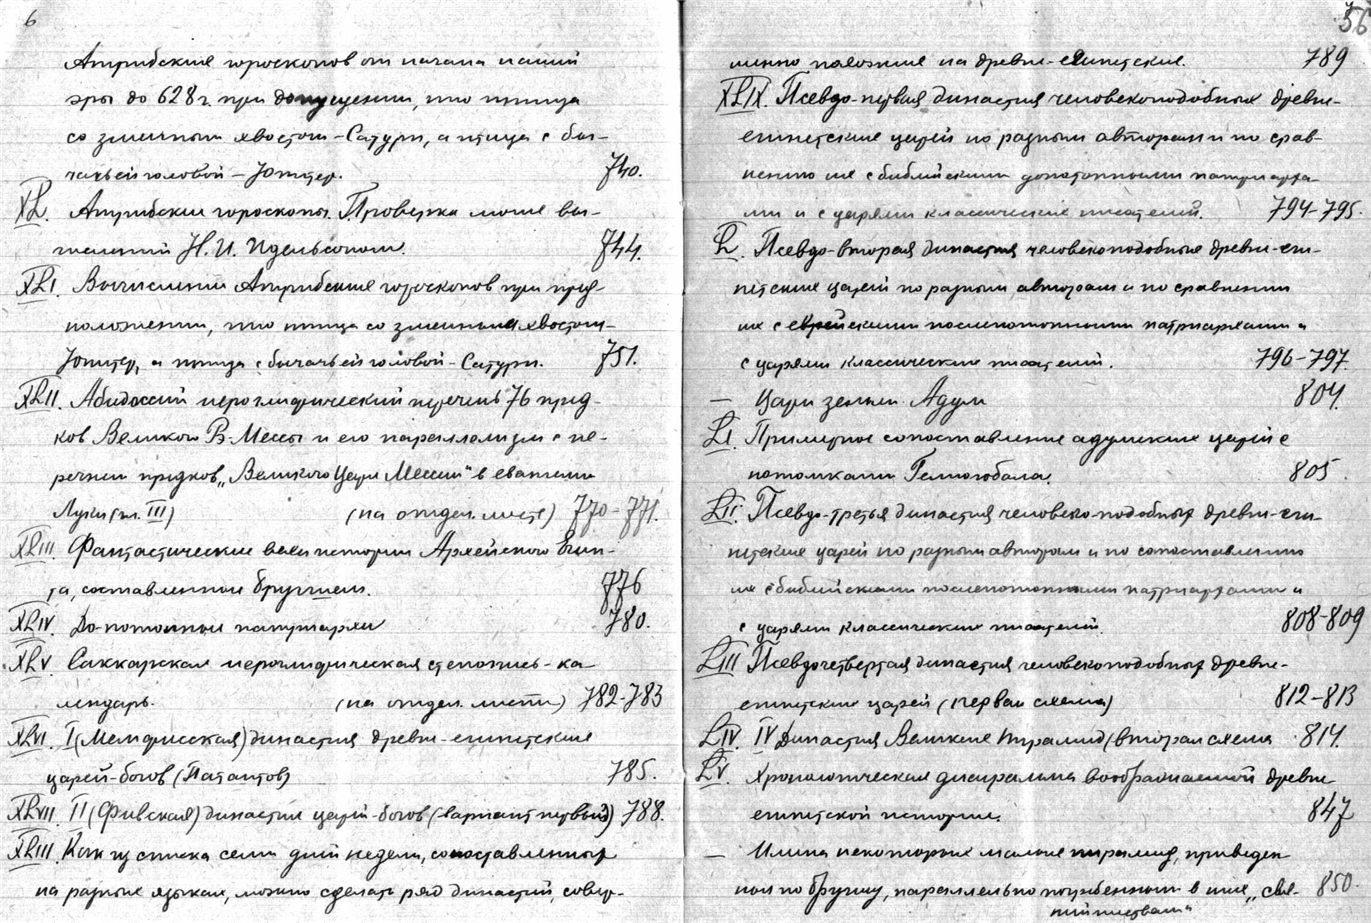 6
Атрибские гороскопов от начала нашей
эры до 628 г. при допущении, что птица
со змеиным хвостом – Сатурн, а птица с бы-
чачьей головой – Юпитер. 740.
XL. Атрибские гороскопы. Проверка моих вы-
числений Н. И. Идельсоном. 744.
XLI. Вычисления Атрибских гороскопов при пред-
положении, что птица со змеиным хвостом –
Юпитер, а птица с бычачьей головой – Сатурн. 751.
XLII. Абидосский иероглифический перечень 76 пред-
ков Великого Рэ-Мессы и его параллелизм с пе-
речнем предков „Великого Царя Мессии" в евангелии
Луки (гл. III) (на отдел. листе) 770-771.
XLIII. Фантастические вехи истории Арийского Егип-
та, составленные Бругшем. 776
XLIV. До-потопные патриархи 780.
XLV. Саккарская иероглифическая стенопись-ка-
лендарь. (на отдел. листе) 782-783
XLVI. I (Мемфисская) династия древне-египетских
царей-богов (Патаитов) 785.
XLVII. II (Фивская) династия царей-богов (вариант первый) 788.
XLIII. Как из списка семи дней недели, сопоставленных
на разных языках, можно сделать ряд династий, совер-
56
шенно похожих на древне-египетские. 789
XLIX. Псевдо-первая династия человекоподобных древне-
египетских царей по разным авторам и по срав-
нению их с библейскими допотопными патриарха-
ми и с царями классических писателей. 794-795.
L. Псевдо-вторая династия человекоподобных древне-еги-
петских царей по разным авторам и по сравнении
их с еврейскими послепотопными патриархами и
с царями классических писателей. 796-797.
— Цари земли Адум 804.
LI. Примерное сопоставление адумских царей с
потомками Гелиогобала. 805.
LII. Псевдо-третья династия человеко-подобных древне-еги-
петских царей по разным авторам и по сопоставлению
их с библейскими послепотопными патриархами и
с царями классических писателей. 808-809
LIII Псевдочетвертая династия человекоподобных древне-
египетских царей (первая схема) 812-813
LIV. IV Династия Великих пирамид (вторая схема 814.
LV. Хронологическая диаграмма воображаемой древне-
египетской истории. 847
— Имена некоторых малых пирамид, приведен
ном по Бругшу, параллельно погребенным в них „свя- 850.